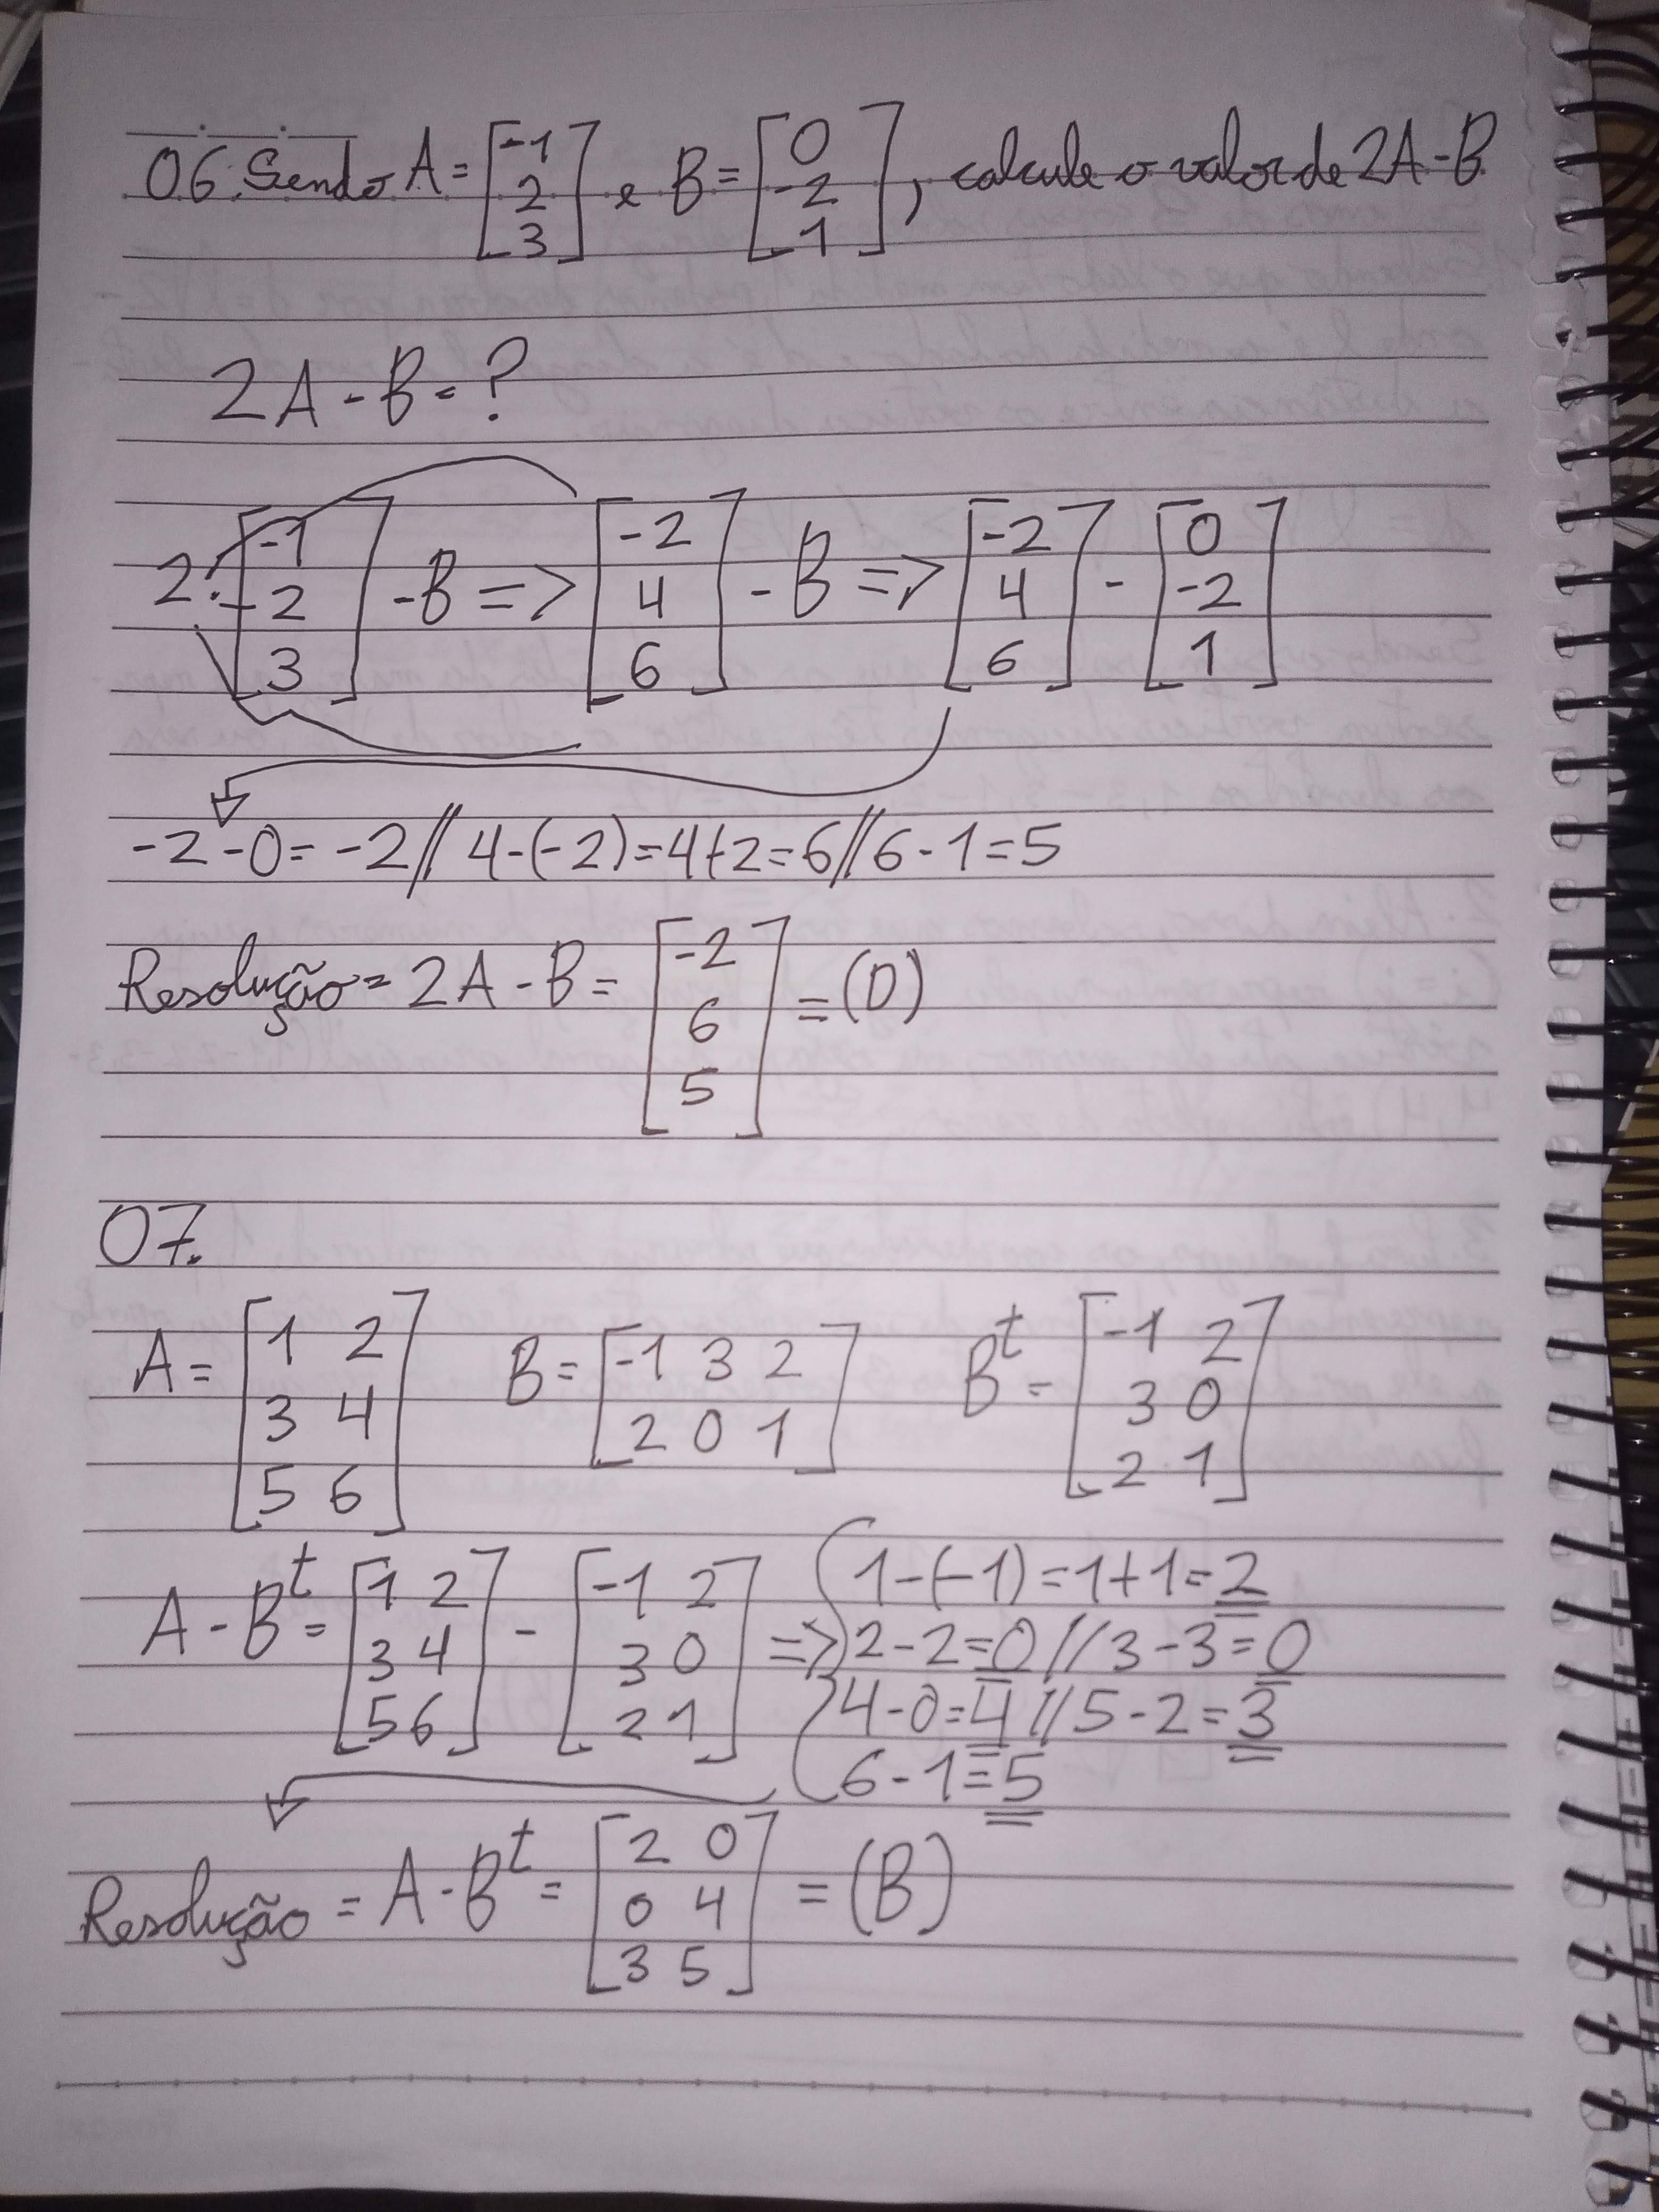 06. Sendo A = [-1 2 3] e B = [0 -2 1], calcule o valor de 2A-B
2A - B = ?
2 · [-1 2 3] - B => [-2 4 6] - B => [-2 4 6] - [0 -2 1]
-2 - 0 = -2 // 4-(-2)=4+2=6 // 6-1=5
Resolução = 2A - B = [-2 6 5] = (D)
07.
A = [1 2
3 4
5 6]
B = [-1 3 2
2 0 1]
B^t = [-1 2
3 0
2 1]
A - B^t = [1 2
3 4
5 6] - [-1 2
3 0
2 1] =>
1-(-1)=1+1=2
2-2=0 // 3-3=0
4-0=4 // 5-2=3
6-1=5
Resolução = A - B^t = [2 0
0 4
3 5] = (B)